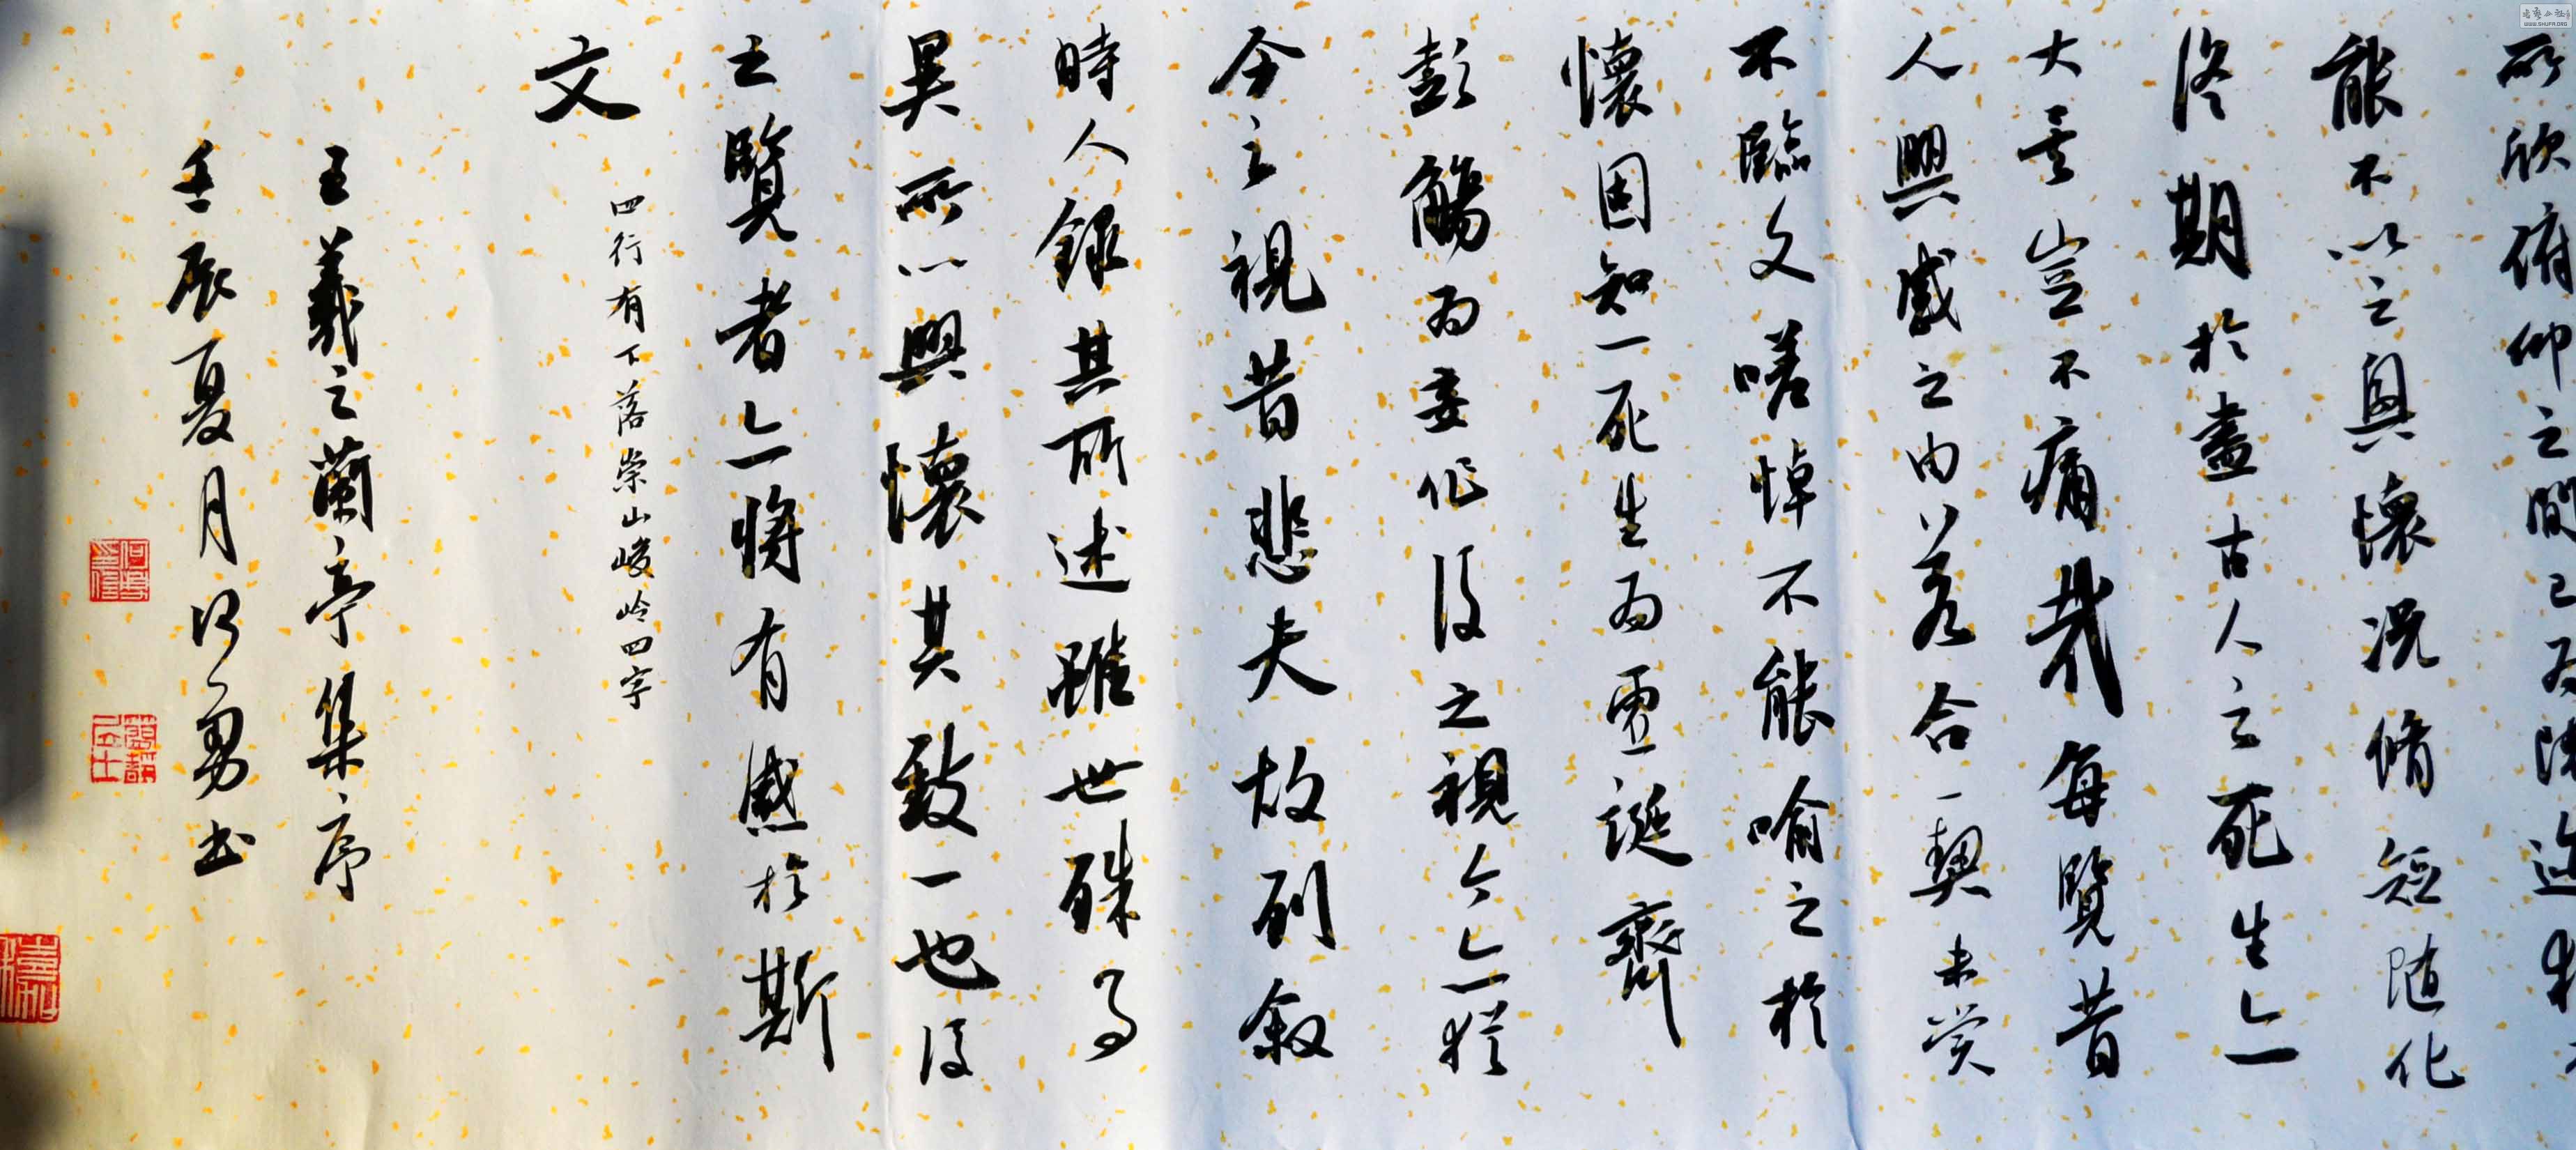 所欣俯仰之間已為陳迹猶
能不以之興懷況脩短隨化
終期於盡古人云死生亦
大矣豈不痛哉每覽昔
人興感之由若合一契未嘗
不臨文嗟悼不能喻之於
懷固知一死生為虛誕齊
彭殤為妄作後之視今亦猶
今之視昔悲夫故列敘
時人錄其所述雖世殊事
異所以興懷其致一也後
之覽者亦將有感於斯
文
四行有下落崇山峻岭四字
王羲之蘭亭集序
壬辰夏月何勇书
WWW.SHUFA.ORG